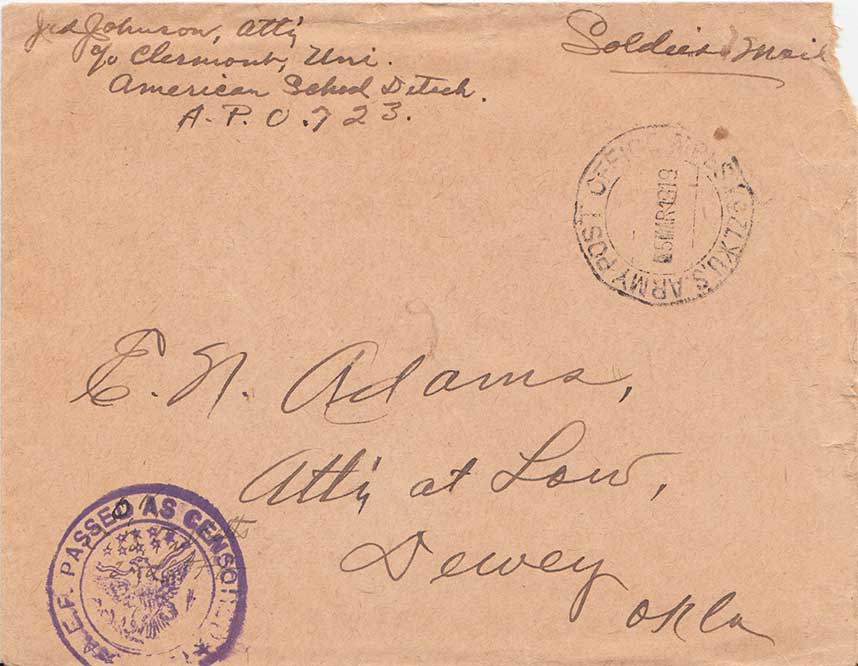 Jed Johnson, Atty
c/o Clermont, Uni.
American School Detach.
A.P.O. 723.
Soldiers Mail
U.S. ARMY POST OFFICE M.P.E.S.
MAR 1919
E. N. Adams,
Atty at Law,
Dewey
Okla
A.E.F. PASSED AS CENSORED